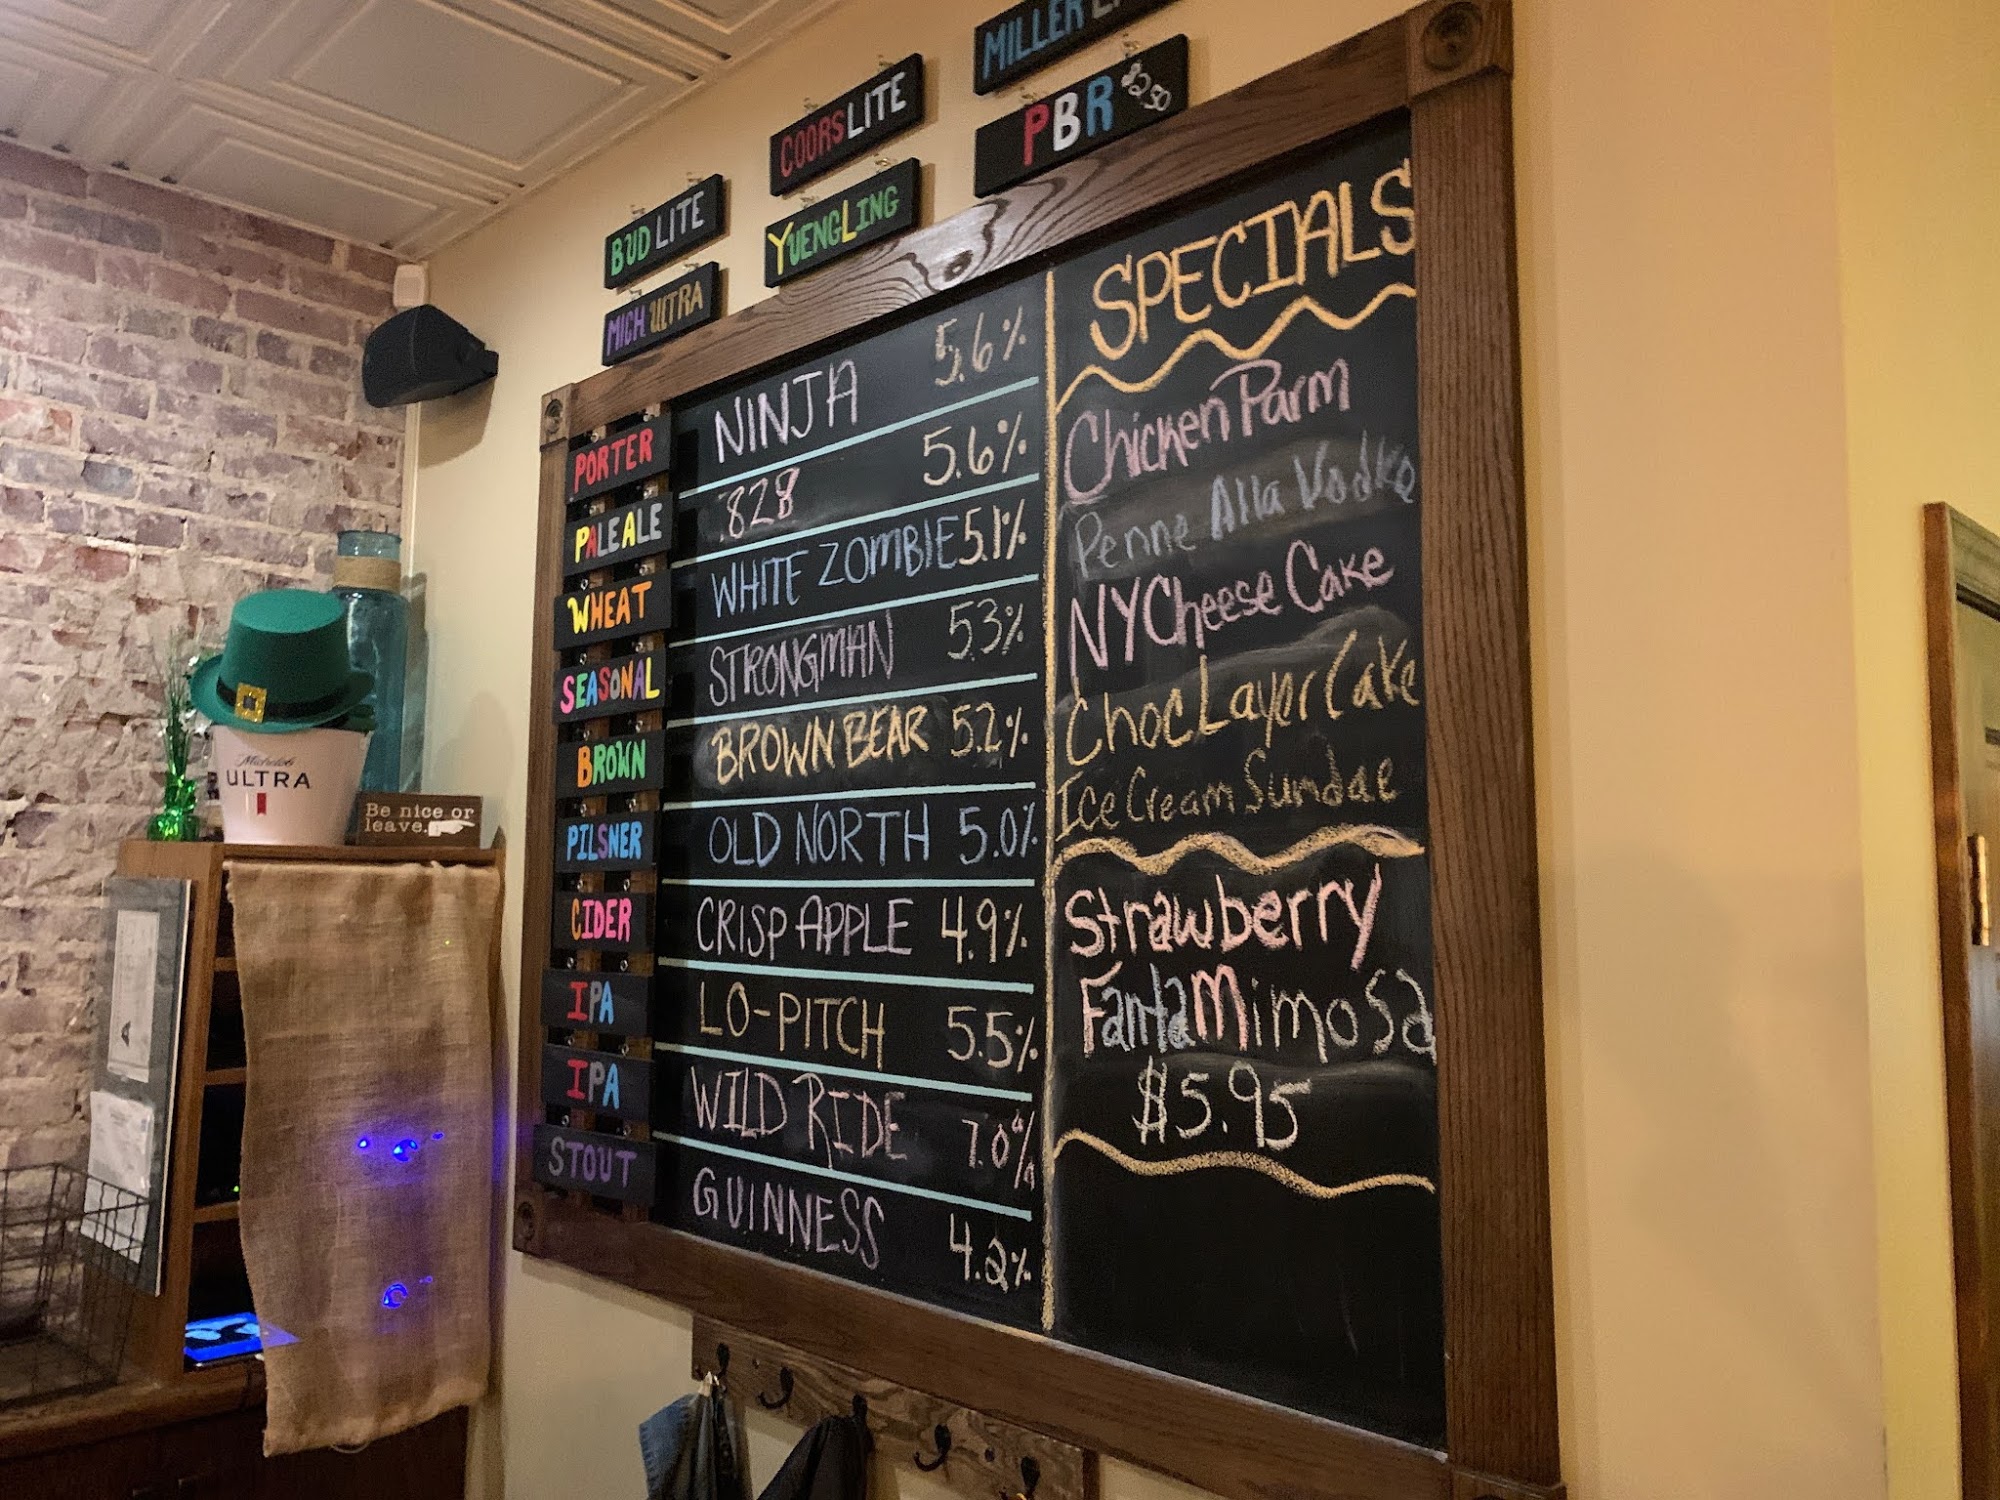 MILLER
PBR $2.50
COORS LITE
YUENGLING
BUD LITE
MICH ULTRA
PORTER NINJA 5.6%
PALE ALE 828 5.6%
WHEAT WHITE ZOMBIE 5.1%
SEASONAL STRONGMAN 5.3%
BROWN BROWN BEAR 5.2%
PILSNER OLD NORTH 5.0%
CIDER CRISP APPLE 4.9%
IPA LO-PITCH 5.5%
IPA WILD RIDE 7.0%
STOUT GUINNESS 4.2%
SPECIALS
Chicken Parm
Penne Alla Vodka
NY Cheese Cake
Choc Layer Cake
Ice Cream Sundae
Strawberry
Fanta Mimosa
$5.95
Michelob
ULTRA
Be nice or
leave.